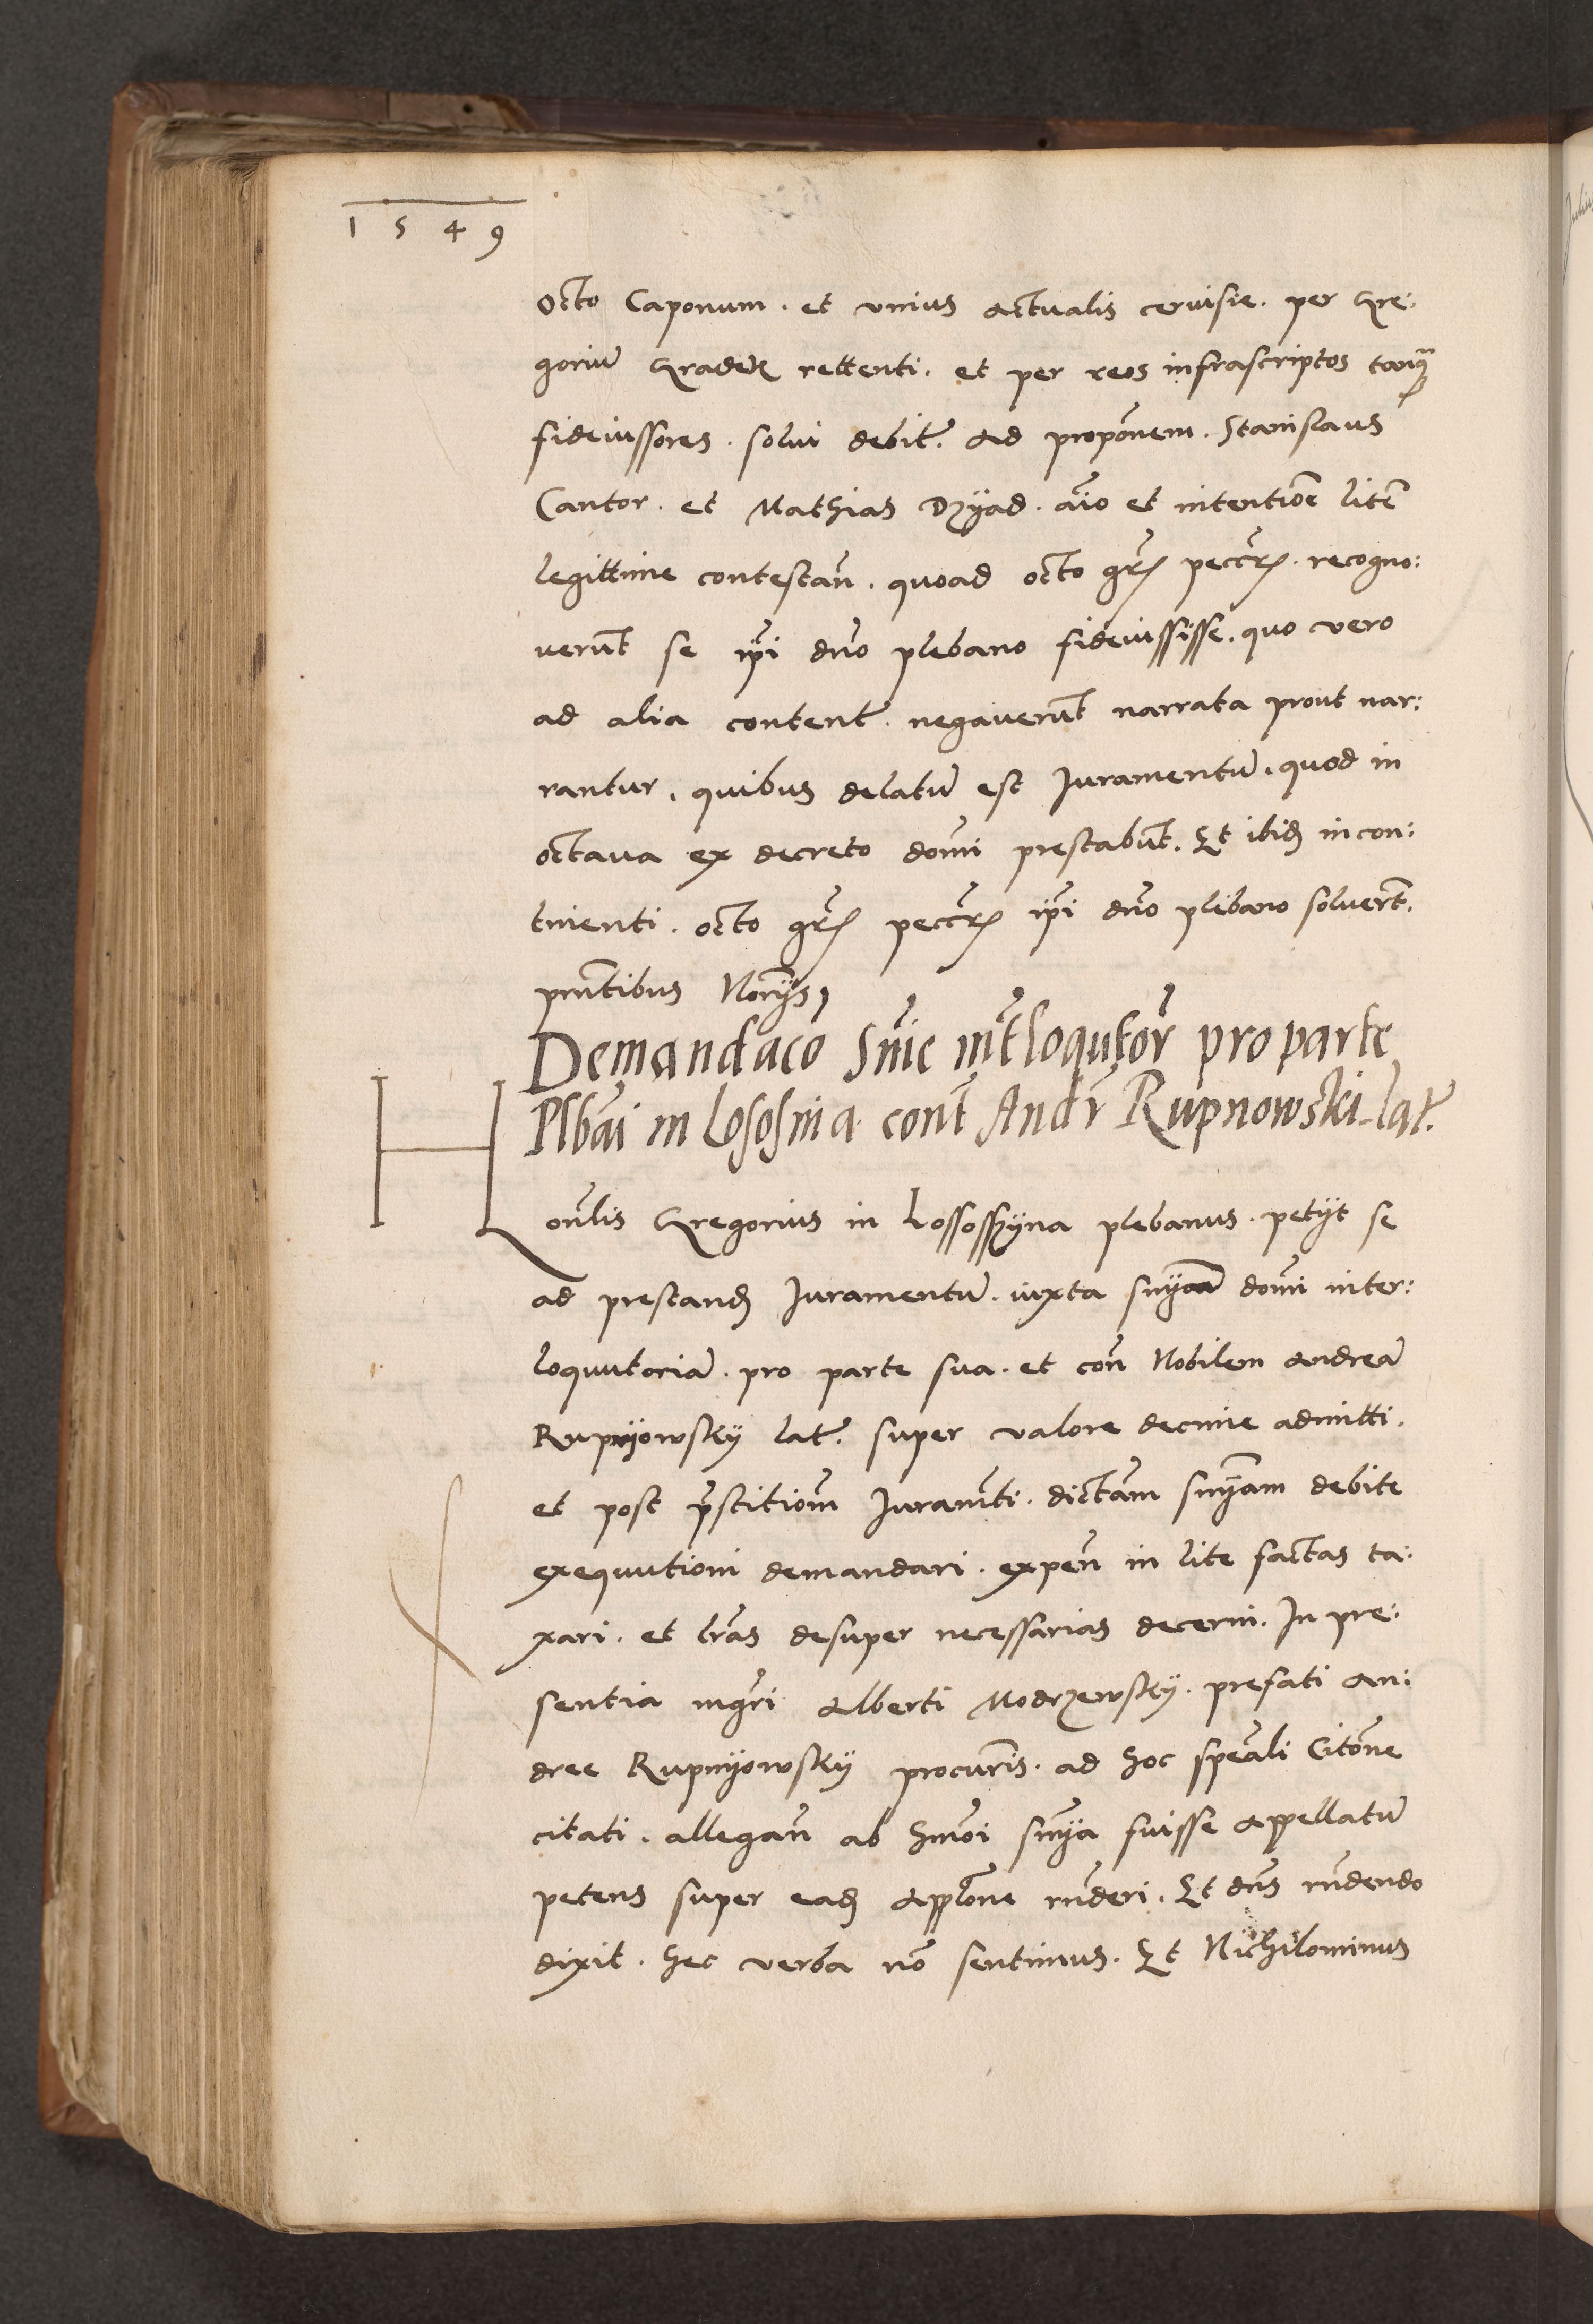 1549
octo Caponum. et vnius actualis ceruisie. per Gre:
goriū retenti. et per reos infrascriptos tanq̄
fideiussores. solui debit̄. ad propōnem. Stanislaus
Cantor. et Mathias Dzÿad. aīo et intentiōe litē
legittime contestan̄. quoad octo gr̄ pecc̄r. recogno:
verūt se ip̄i dn̄o plebano fideiussisse. quo vero
ad alia content̄. negauerūt narrata prout nar:
rantur. quibus delatū est Juramentū. quod in
octaua ex decreto domī prestabūt. Et ibid̄ incon:
tinenti. octo gr̄ pecc̄r ip̄i dn̄o plebano soluer̄t.
prn̄tibus Nor̄ijs
Demandacō Sn̄ie int̄loqutor̄ pro parte
Plbāi in Lososina cont̄ Andr̄ Rupnowski lat̄.
Honl̄is Gregorius in Lossossÿna plebanus. petÿt se
ad prestand̄ Juramentū. iuxta snÿam̄ domī inter:
loquutoriā. pro parte sua. et con̄ Nobilem Andreā
Rupnÿowskÿ lat̄. super valore decime admitti.
et post p̄stitiom̄ Juramn̄ti. dictam sn̄yam debite
exequutioni demandari. expen̄ in lite factas ta:
xari. et lr̄as desuper necessarias decerni. In pre:
sentia mgr̄i Alberti Modrzewskÿ. prefati An:
dree Rupnÿowskÿ procur̄is. ad hoc spēali Citōne
citati. allegan̄ ab hmōi sn̄ÿa fuisse appellatū
petens super ead̄ applōne rn̄deri. Et dn̄s rn̄dendo
dixit. hec verba nō sentimus. Et Nichilominus